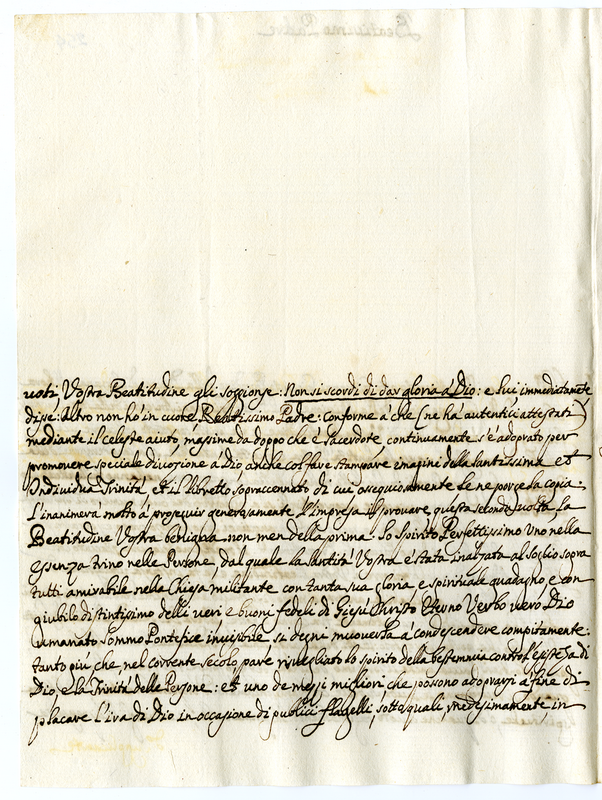 uoti Vostra Beatitudine gli soggionse: Non si scordi di dar gloria à Dio: e lui immediatamete
disse: Altro non hò in cuore Beatissimo Padre: conforme à che (ne ha autentici attestati)
mediante il celeste aiuto, massime da doppo che è sacerdote, continuamente s'è adoprato per
promouere speciale diuozione à Dio anche col fare stampare imagini della santissima et
Indiuidua Trinità, et il libretto sopraccennato di cui ossequiosamente le ne porge la copia.
L'inanimerà molto à proseguir generosamente l'impresa il prouare, questa seconda uolta, la
Beatitudine Vostra benigna non men della prima. Lo Spirito Perfettissimo Uno nella
essenza trino nelle Persone, dal quale la Santità Vostra è stata inalzata al Soglio sopra
tutti amirabile nella Chiesa militante con tanta sua gloria, e spirituale guadagno, e con
giubilo distintissimo delli ueri e buoni fedeli di Giesù Christo Eterno Verbo uero Dio
umanato Sommo Pontefice inuisibile si degni muouerla à condescendere compitamente:
tanto più che nel corrente secolo pare risuegliato lo spirito della bestemmia contro l'esistenza di
Dio, e la Trinità delle Persone: et uno de mezzi migliori che possono adoprarsi à fine di
placare l'ira di Dio in occasione di publici flagelli, sotto quali, medesimamente in